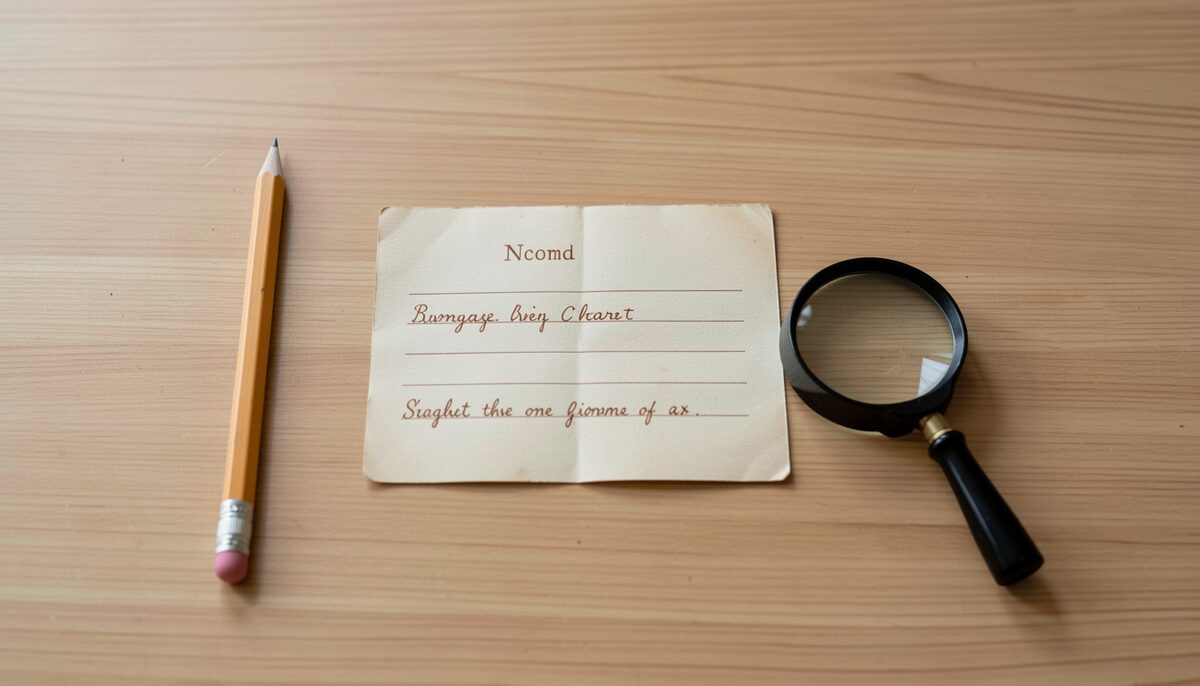 Ncomd
Rumgage. Briey Charet
Siaghet the one Gionme of ax.